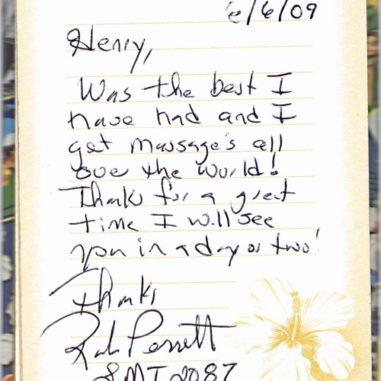 6/6/09
Henry,
Was the best I
have had and I
get massage's all
over the world!
Thanks for a great
time I will see
you in a day or two!
Thanks
Rob Perrett
LMT 2087